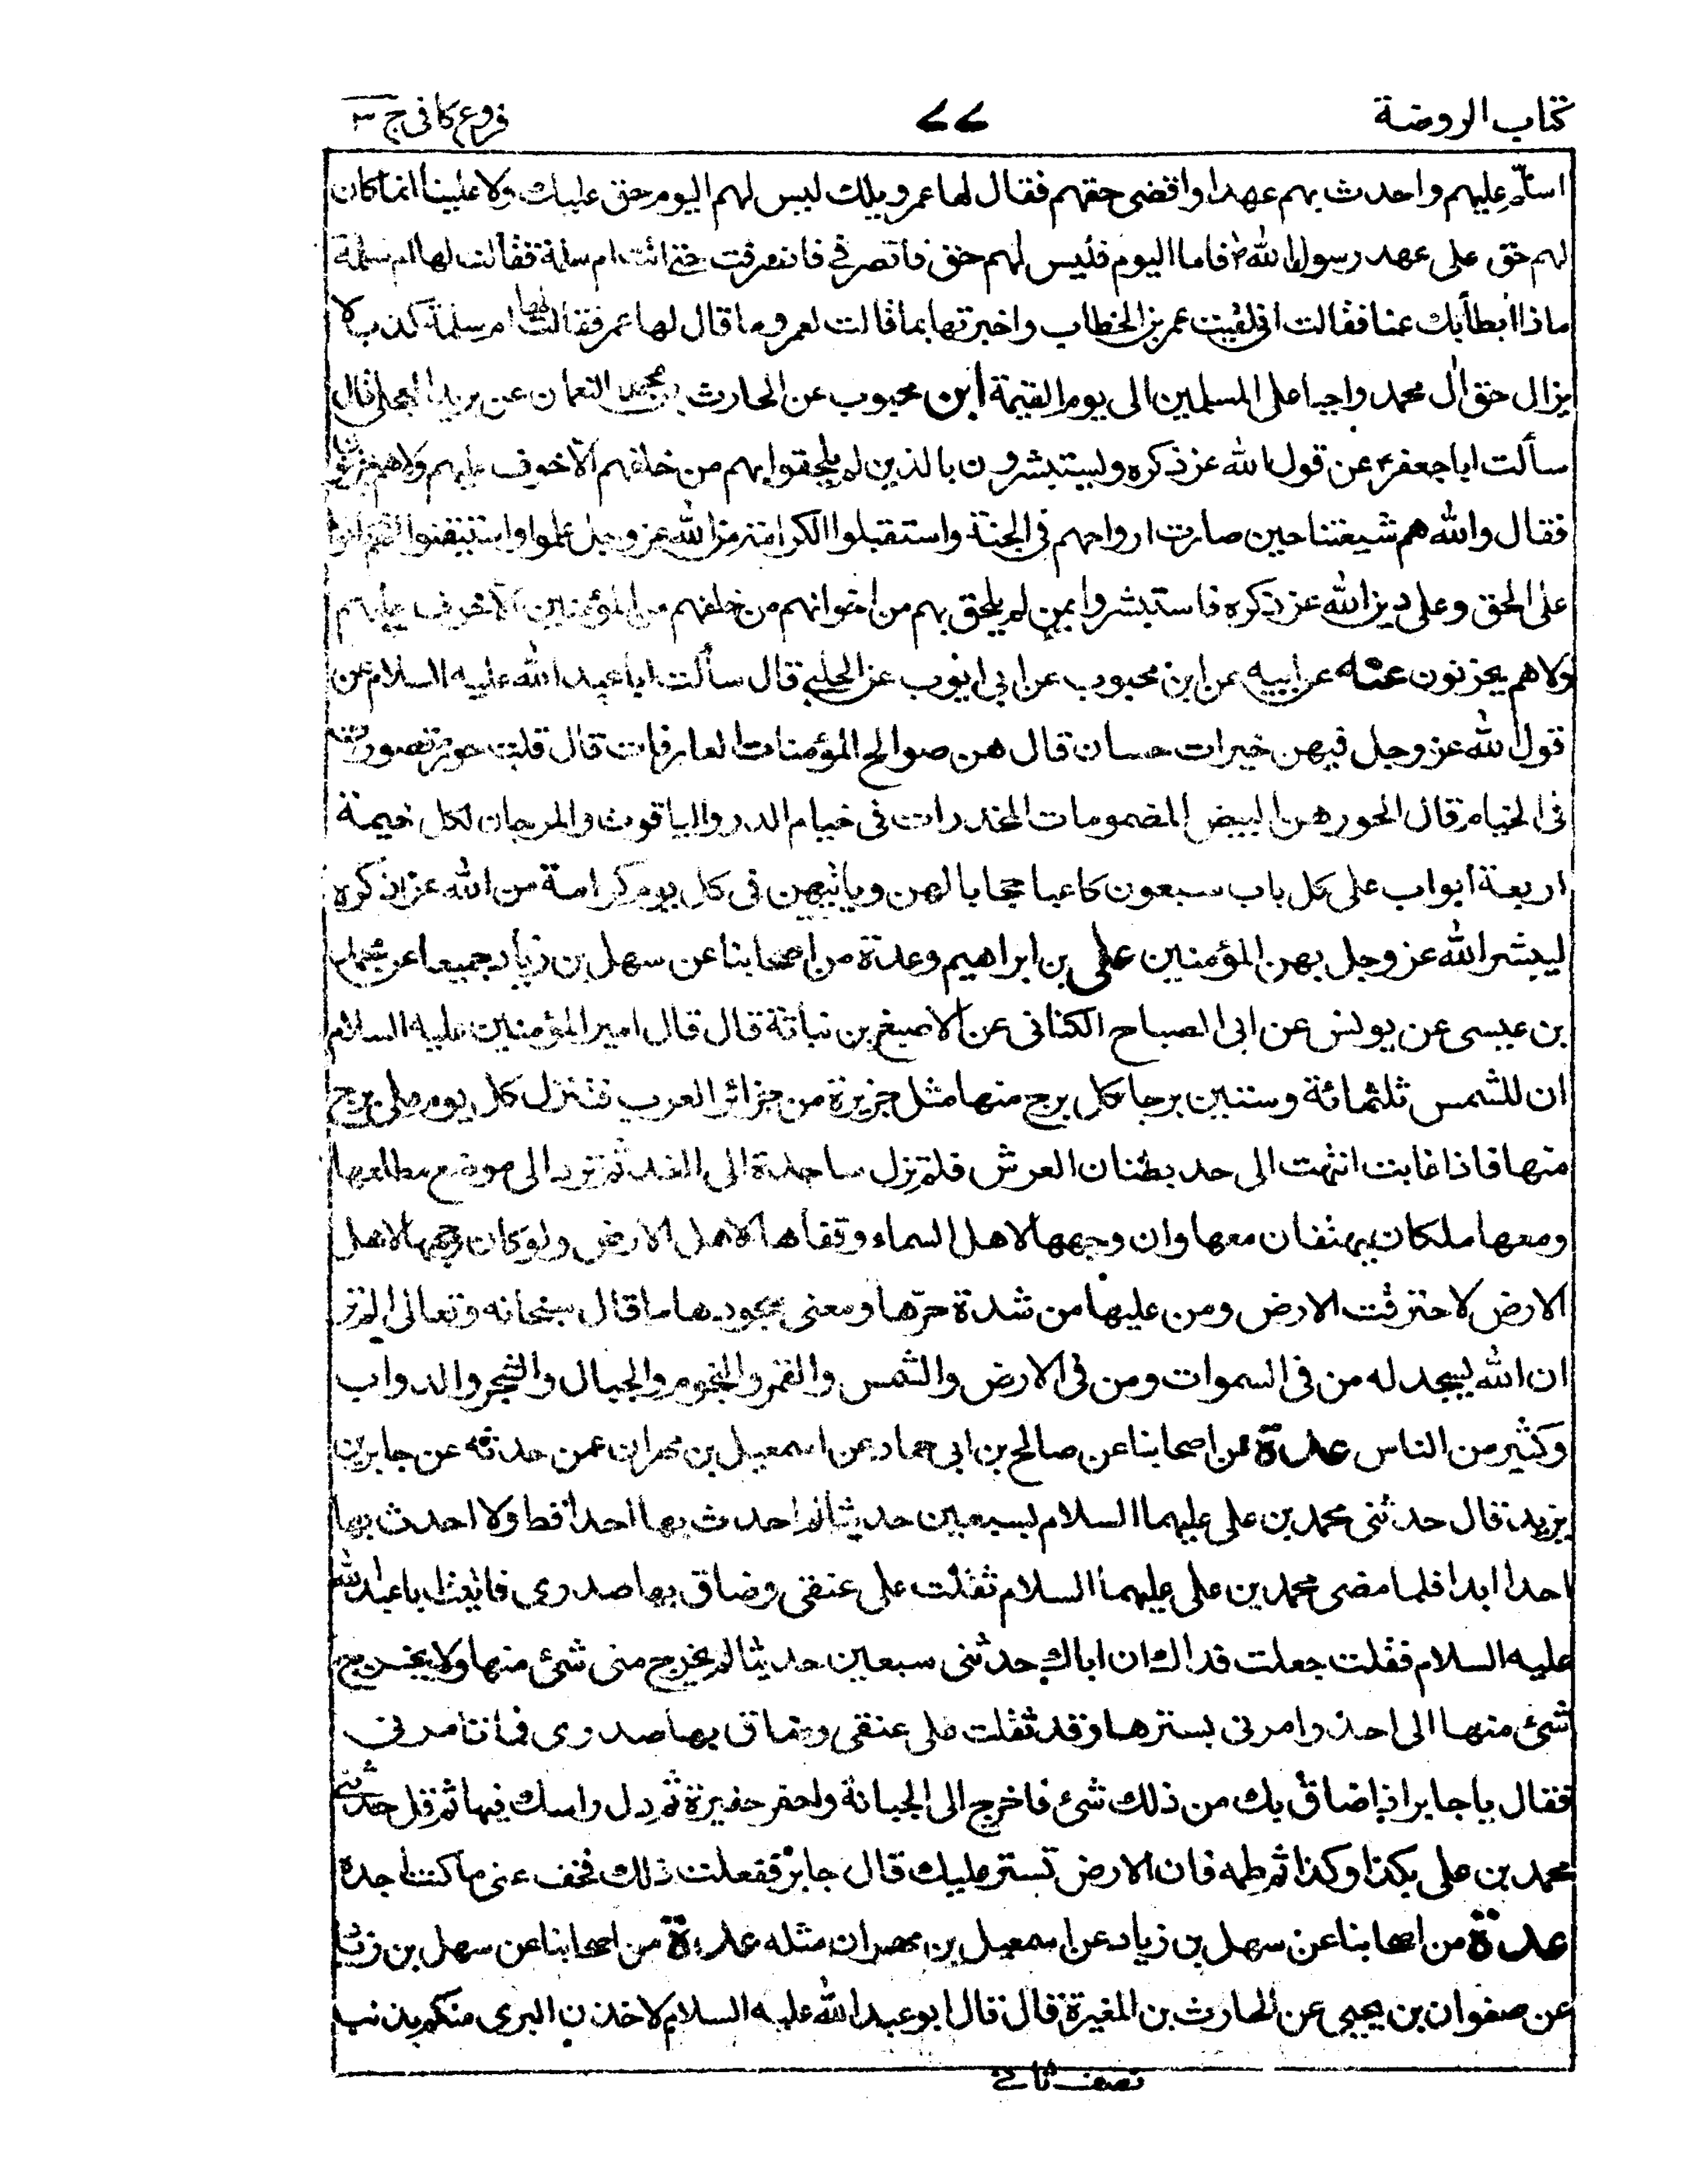 كتاب الروضة
٧٧
فروع كافى ج ٣
اسلّم عليهم واحدث بهم عهدا واقضى حقهم فقال لها عمر ويلك ليس لهم اليوم حق عليك ولا علينا انما كان
لهم حق على عهد رسول الله ص فاما اليوم فليس لهم حق فانصرفى فانصرفت حتى اتت ام سلمة فقالت لها ام سلمة
ماذا ابطأ بك عنا فقالت انى لقيت عمر بن الخطاب واخبرتها بما قالت لعمر وما قال لها عمر فقالت لها ام سلمة كذب لا
يزال حق آل محمد واجبا على المسلمين الى يوم القيمة ابن محبوب عن الحارث بن محمد بن النعمان عن بريد العجلى قال
سألت ابا جعفر ع عن قول الله عز ذكره ويستبشرون بالذين لم يلحقوا بهم من خلفهم الا خوف عليهم ولا هم يحزنون
فقال والله هم شيعتنا حين صارت ارواحهم فى الجنة واستقبلوا الكرامة من الله عز وجل علموا واستيقنوا انهم كانوا
على الحق وعلى دين الله عز ذكره فاستبشروا بمن لم يلحق بهم من اخوانهم من خلفهم من المؤمنين الا خوف عليهم
ولا هم يحزنون عنه عن ابيه عن ابن محبوب عن ابى ايوب عن الحلبى قال سألت ابا عبد الله عليه السلام عن
قول الله عز وجل فيهن خيرات حسان قال هن صوالح المؤمنات العارفات قال قلت حور مقصورات
فى الخيام قال الحور هن البيض المضمومات المخدرات فى خيام الدر والياقوت والمرجان لكل خيمة
اربعة ابواب على كل باب سبعون كاعبا حجابا لهن وياتيهن فى كل يوم كرامة من الله عز ذكره
ليبشر الله عز وجل بهن المؤمنين على بن ابراهيم وعدة من اصحابنا عن سهل بن زياد جميعا عن محمد
بن عيسى عن يونس عن ابى الصباح الكنانى عن الاصبغ بن نباتة قال قال امير المؤمنين عليه السلام
ان للشمس ثلثمائة وستين برجا كل برج منها مثل جزيرة من جزائر العرب فتنزل كل يوم على برج
منها فاذا غابت انتهت الى حد بطنان العرش فلم تزل ساجدة الى الغد ثم ترد الى موضع مطلعها
ومعها ملكان يهتفان معها وان وجهها لاهل السماء وقفاها لاهل الارض ولو كان وجهها لاهل
الارض لاحترقت الارض ومن عليها من شدة حرّها ومعنى سجودها ما قال سبحانه وتعالى الم تر
ان الله يسجد له من فى السموات ومن فى الارض والشمس والقمر والنجوم والجبال والشجر والدواب
وكثير من الناس عدة من اصحابنا عن صالح بن ابى حماد عن اسمعيل بن مهران عمن حدثه عن جابر بن
يزيد قال حدثنى محمد بن على عليهما السلام بسبعين حديثا لم احدث بها احدا قط ولا احدث بها
احدا ابدا فلما مضى محمد بن على عليهما السلام ثقلت على عنقى وضاق بها صدرى فاتيت ابا عبد الله
عليه السلام فقلت جعلت فداك ان اباك حدثنى سبعين حديثا لم يخرج منى شئ منها ولا يخرج
شئ منها الى احد وامرنى بسترها وقد ثقلت على عنقى وضاق بها صدرى فما تامرنى
فقال يا جابر اذا ضاق بك من ذلك شئ فاخرج الى الجبانة واحفر حفيرة ثم دل راسك فيها ثم قل حدثنى
محمد بن على بكذا وكذا ثم طمه فان الارض تستر عليك قال جابر ففعلت ذلك فخف عنى ما كنت اجده
عدة من اصحابنا عن سهل بن زياد عن اسمعيل بن مهران مثله عدة من اصحابنا عن سهل بن زياد
عن صفوان بن يحيى عن الحارث بن المغيرة قال قال ابو عبد الله عليه السلام لاخذن البرى منكم بذنب
نصف ثانى